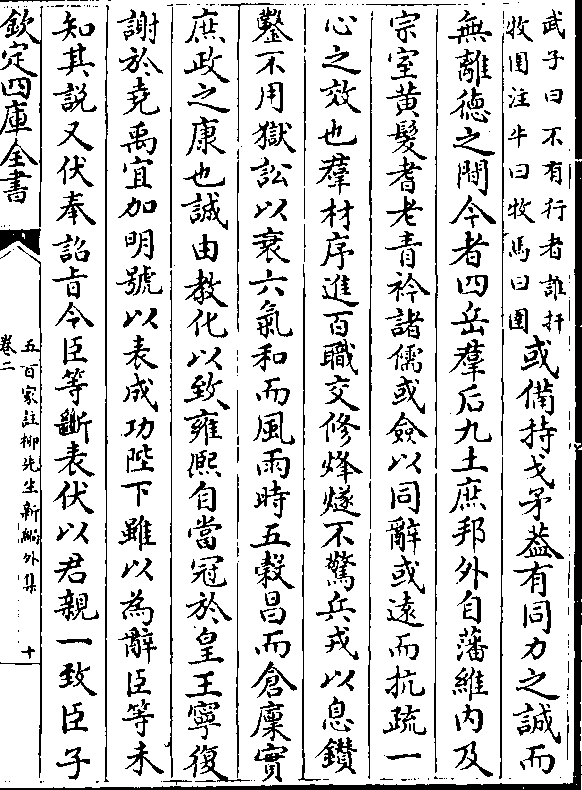 武子曰不有行者誰扞
牧圉注牛曰牧馬曰圉
或備持戈矛葢有同力之誠而
無離徳之間今者四岳羣后九土庶邦外自藩維内及
宗室黄髪耆老青衿諸儒或僉以同辭或逺而抗疏一
心之效也羣材序進百職交修烽燧不驚兵戎以息鑚
鑿不用獄訟以衰六氣和而風雨時五穀昌而倉廩實
庶政之康也誠由教化以致雍熈自當冠於皇王寧復
謝於堯禹宜加明號以表成功陛下雖以為辭臣等未
知其説又伏奉詔㫖令臣等斷表伏以君親一致臣子
欽定四庫全書
五百家註栁先生新編外集
卷二
十